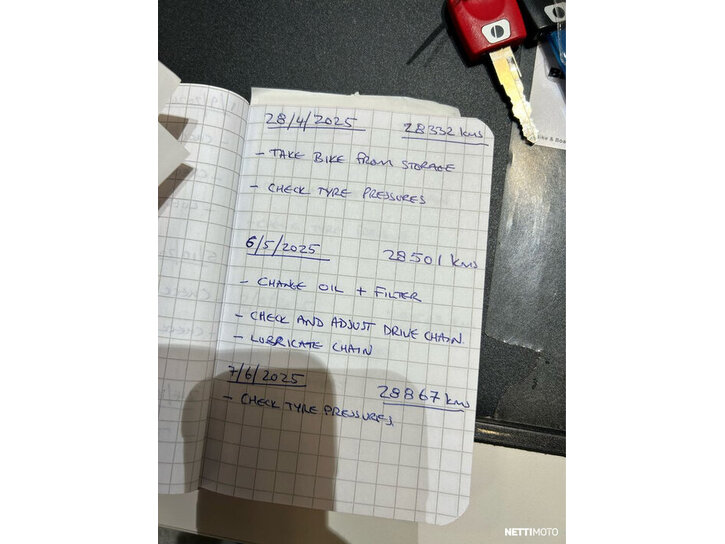 28/4/2025 28332 kms
- TAKE BIKE FROM STORAGE
- CHECK TYRE PRESSURES
6/5/2025 28501 kms
- CHANGE OIL + FILTER
- CHECK AND ADJUST DRIVE CHAIN.
- LUBRICATE CHAIN
7/6/2025 28867 kms
- CHECK TYRE PRESSURES.
NETTIMOTO